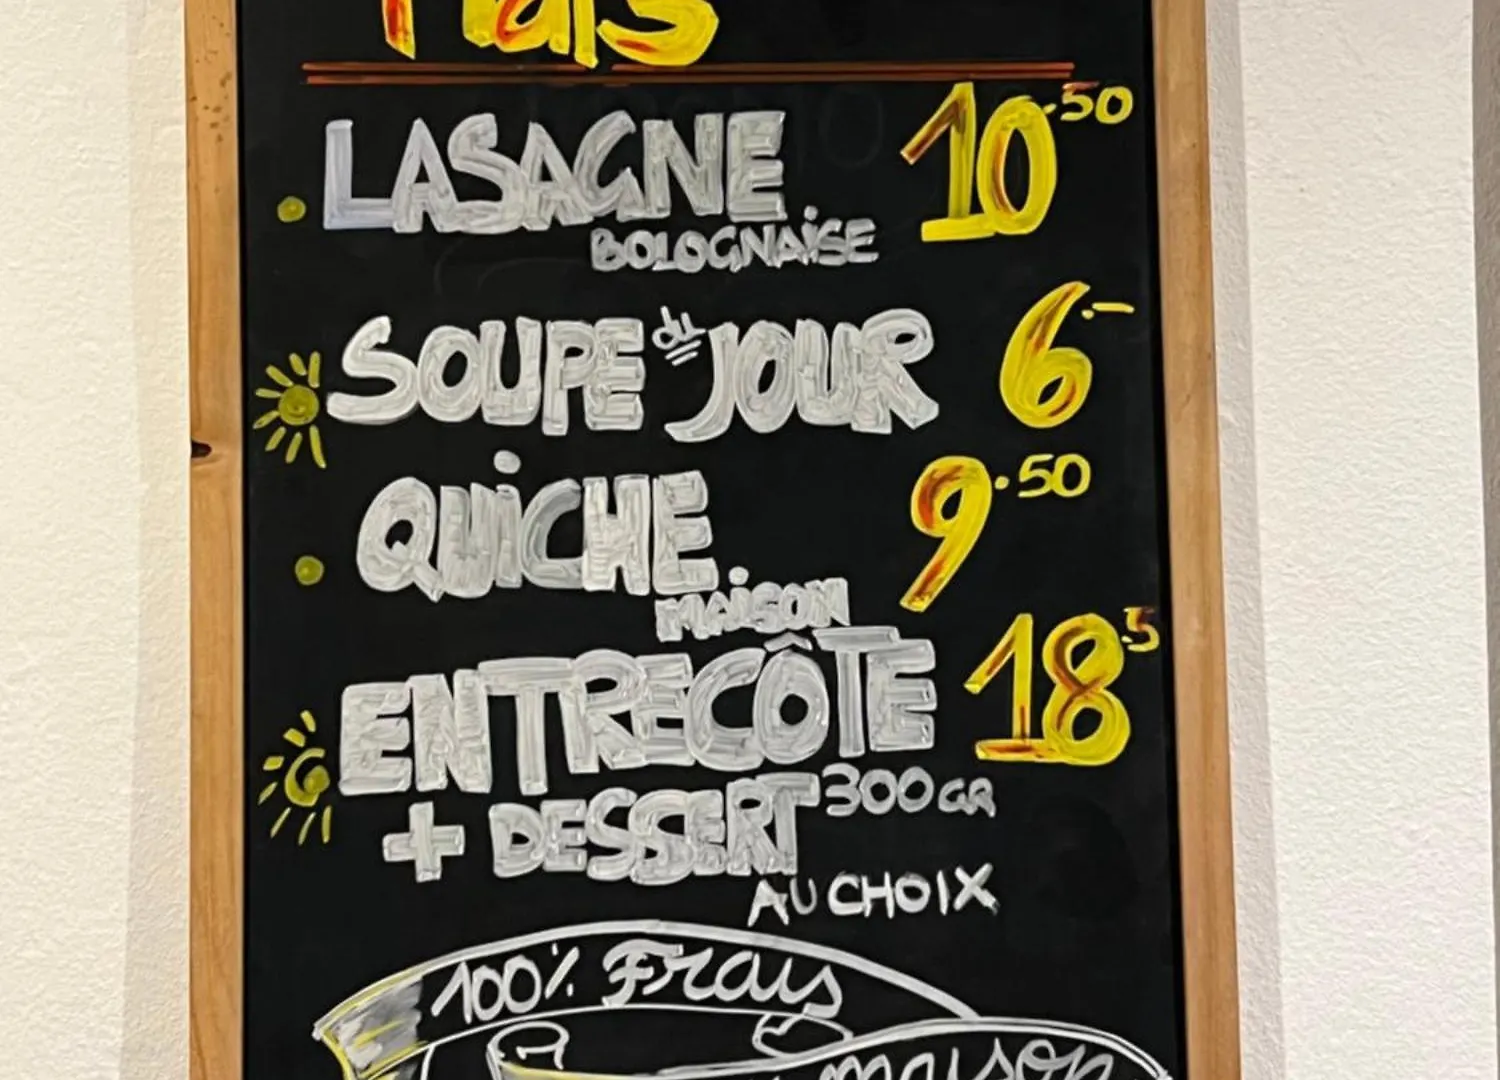 Plats
LASAGNE 10.50
BOLOGNAISE
SOUPE du JOUR 6.-
QUICHE 9.50
MAISON
ENTRECÔTE 18.5
+ DESSERT 300GR
AU CHOIX
100% Frais
maison